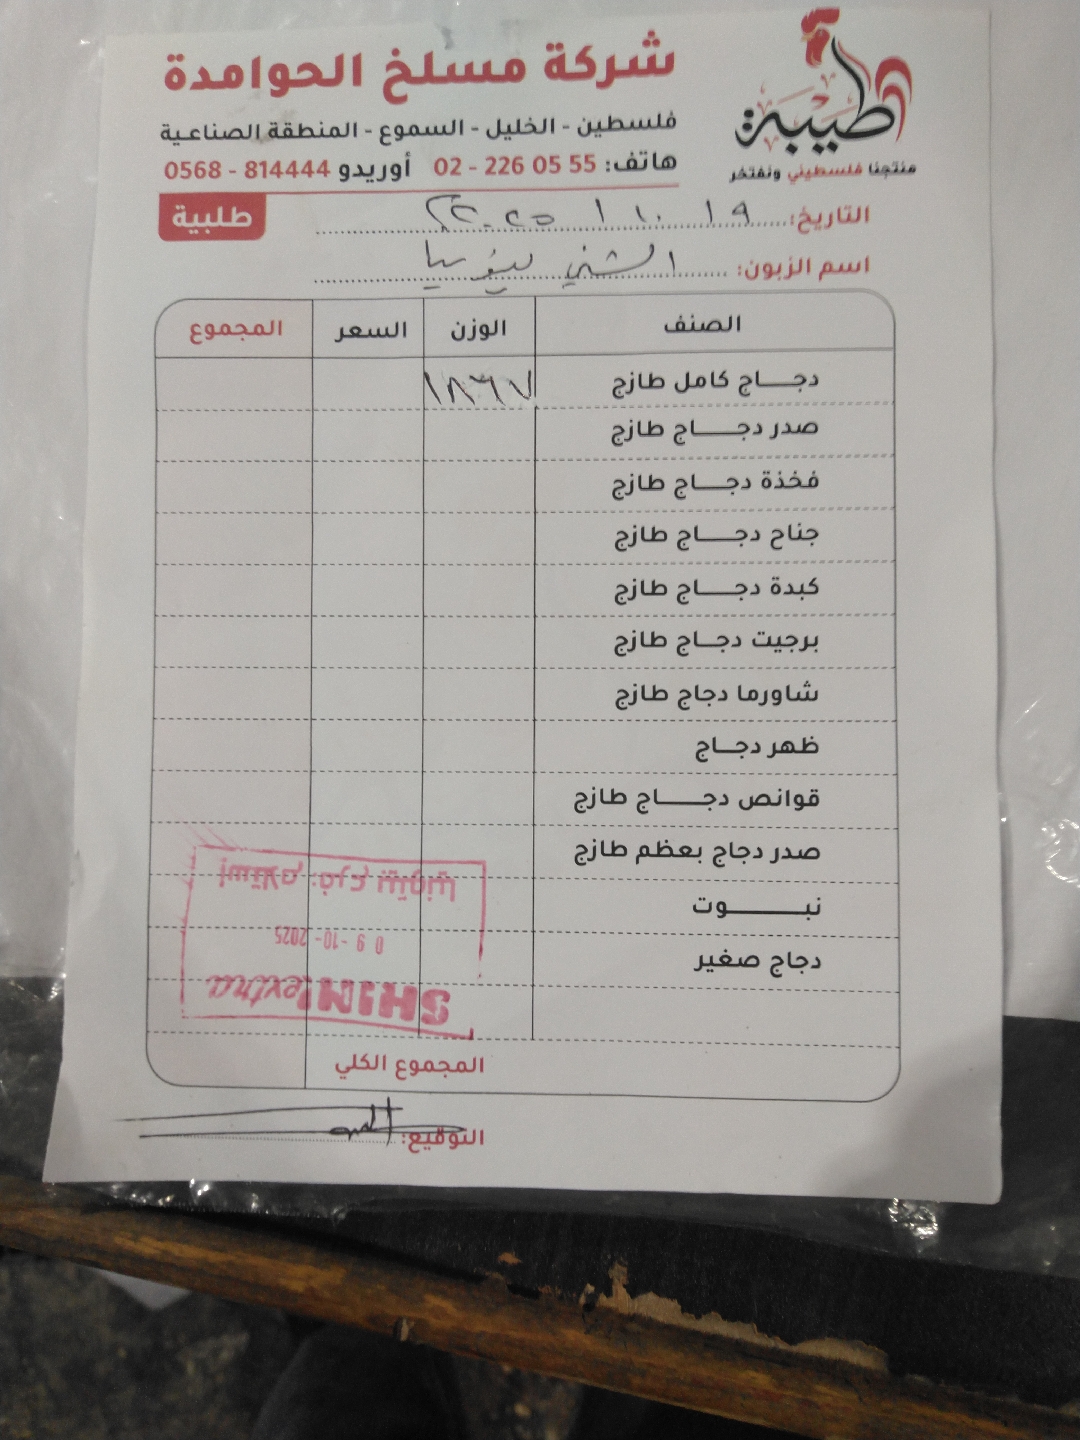 شركة مسلخ الحوامدة
فلسطين - الخليل - السموع - المنطقة الصناعية
هاتف: 02 - 226 05 55 أوريدو 0568 - 814444
طيبة
منتجنا فلسطيني ونفتخر
طلبية
التاريخ: ٩ / ١٠ /
اسم الزبون: الشني
الصنف الوزن السعر المجموع
دجاج كامل طازج ١٨٦٧
صدر دجاج طازج
فخذة دجاج طازج
جناح دجاج طازج
كبدة دجاج طازج
برجيت دجاج طازج
شاورما دجاج طازج
ظهر دجاج
قوانص دجاج طازج
صدر دجاج بعظم طازج
نبوت
دجاج صغير
المجموع الكلي
التوقيع:
SHINI extra
09-10-2025
إستلام فرع بيتونيا